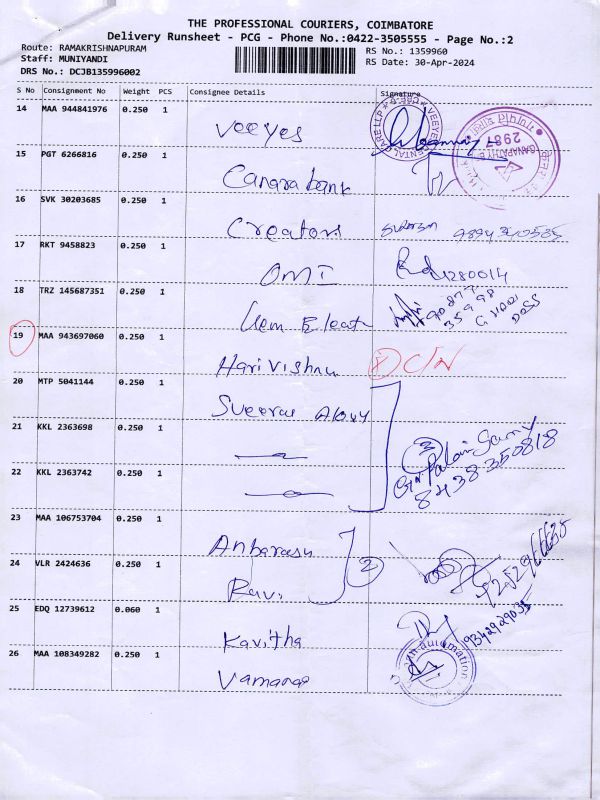 THE PROFESSIONAL COURIERS, COIMBATORE
Delivery Runsheet - PCG - Phone No.:0422-3505555 - Page No.:2
Route: RAMAKRISHNAPURAM
RS No.: 1359960
Staff: MUNIYANDI
RS Date: 30-Apr-2024
DRS No.: DCJB135996002
S No Consignment No Weight PCS Consignee Details Signature
14 MAA 944841976 0.250 1 Veeyes
15 PGT 6266816 0.250 1 Canara bank
16 SVK 30203685 0.250 1 Creators
17 RKT 9458823 0.250 1 OMI
18 TRZ 145687351 0.250 1
19 MAA 943697060 0.250 1 Hari Vishnu C/N
20 MTP 5041144 0.250 1
21 KKL 2363698 0.250 1
22 KKL 2363742 0.250 1
8438350818
23 MAA 106753704 0.250 1 Anbarasu
24 VLR 2424636 0.250 1 Ravi
2
25 EDQ 12739612 0.060 1 Kavitha
26 MAA 108349282 0.250 1